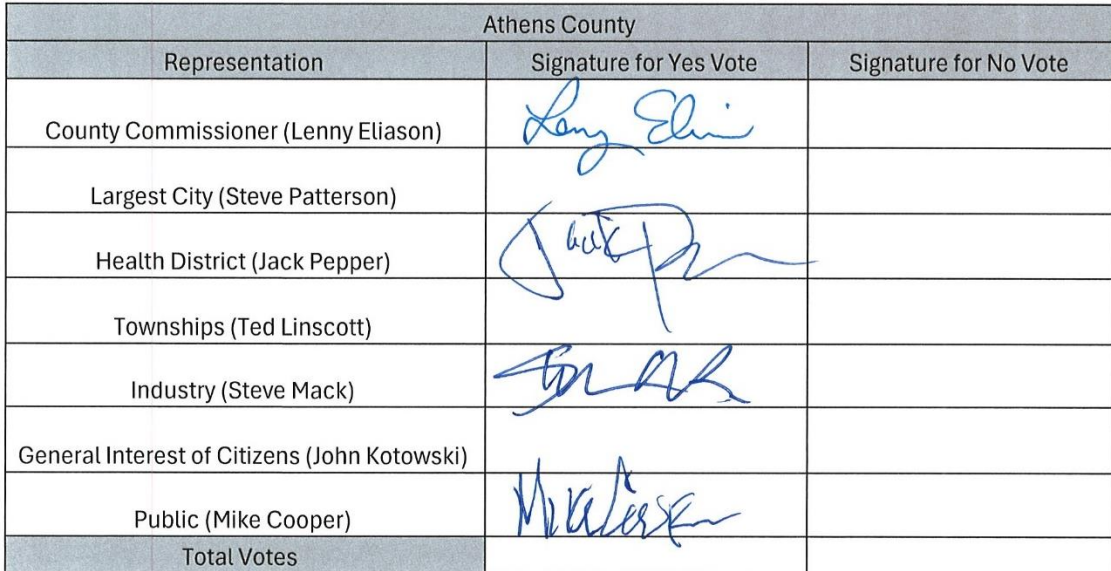 Athens County
Representation Signature for Yes Vote Signature for No Vote
County Commissioner (Lenny Eliason)
Largest City (Steve Patterson)
Health District (Jack Pepper) Jack
Townships (Ted Linscott)
Industry (Steve Mack)
General Interest of Citizens (John Kotowski)
Public (Mike Cooper) Mike
Total Votes